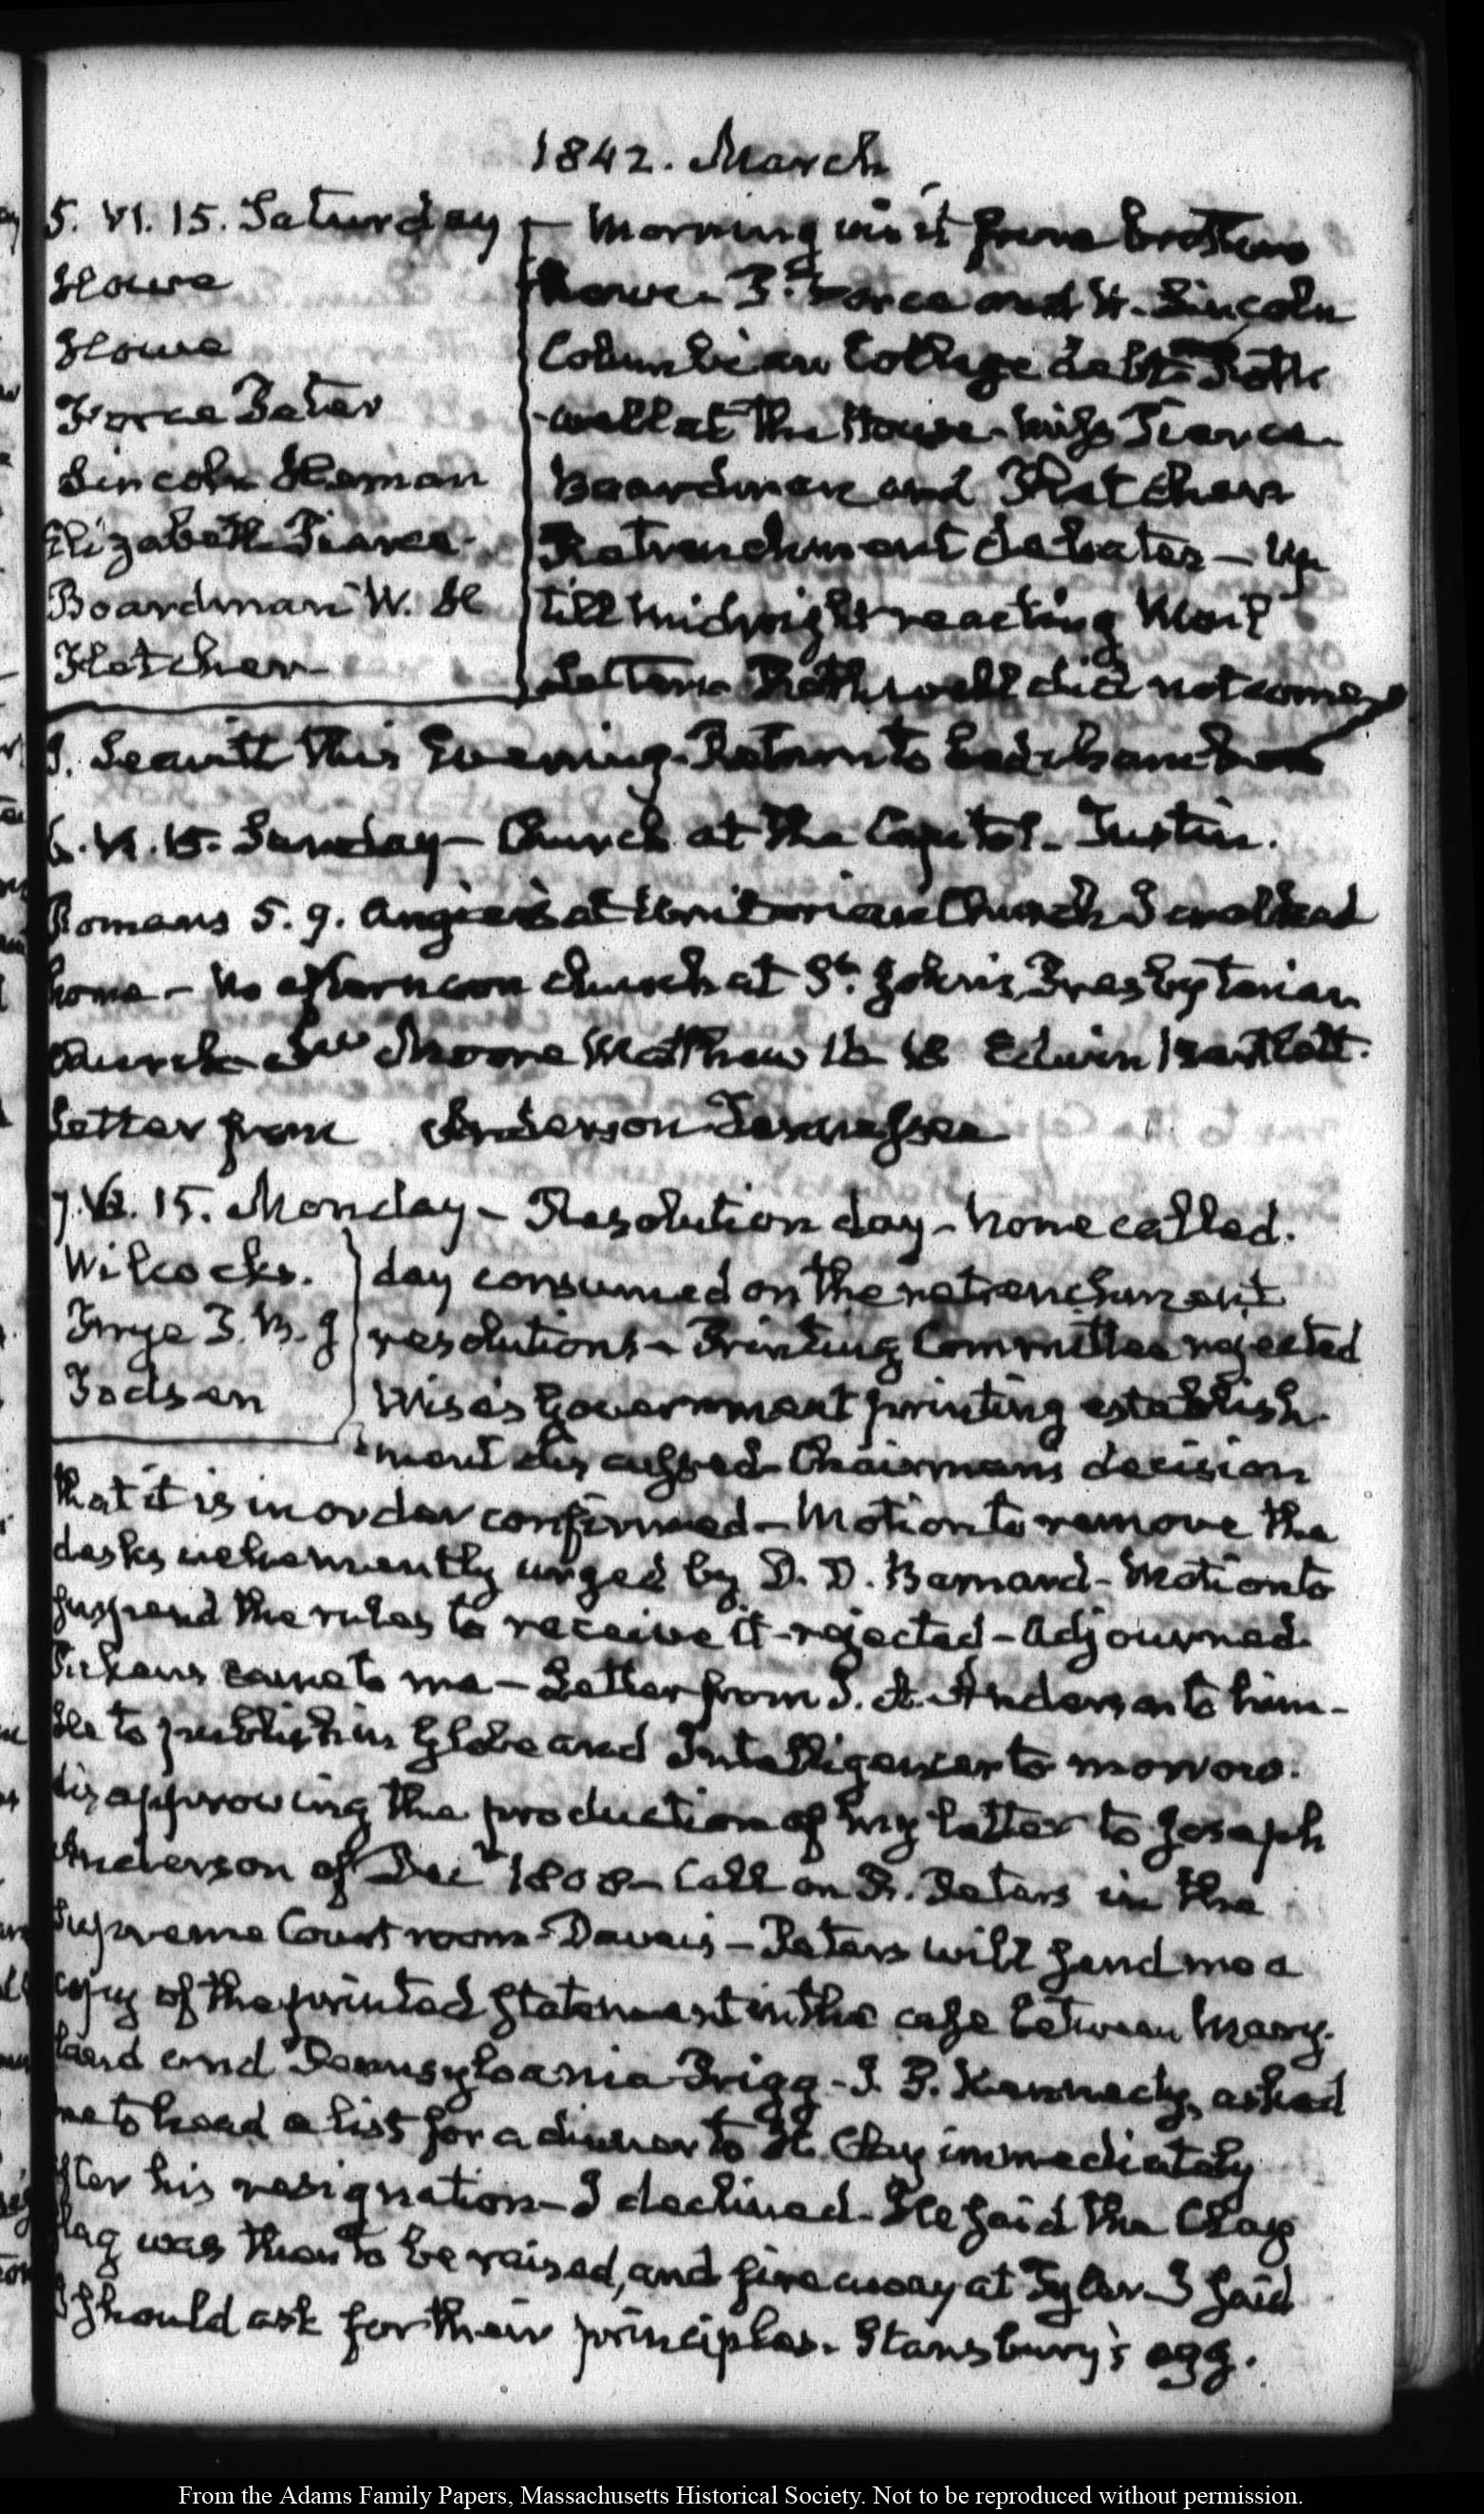 1842. March
5. VI. 15. Saturday
Howe
Howe
Force Peter
Lincoln Heman
Elizabeth Pierce.
Boardman W. H
Fletcher
– Morning visit from brothers
Howe – P. Force and H. Lincoln
Columbian College debt – Roth
-well at the House – Miss Pierce –
Boardman and Fletcher
Retrenchment debates – Up
till midnight reading Mail
Letters Rothwell did not come
J. Leavitt this Evening. Return to bedchamber
6. VI. 15. Sunday – Church at the Capitol – Tustin.
Romans 5. 9. Angier's at Unitarian Church I walked
home – No afternoon church at St. John's, Presbyterian
Church – Moore Matthew 16 18 Edwin Bartlett.
Letter from Anderson Tennessee
7. VI. 15. Monday – Resolution day – None called.
Wilcocks.
Frye
Todsen
day consumed on the retrenchment
resolutions – Printing Committee rejected
Wise's Government printing establish-
ment discussed – Chairman's decision
that it is in order confirmed – Motion to remove the
desks vehemently urged by D. D. Barnard – Motion to
suspend the rules to receive it – rejected – Adjourned
Pickens came to me – Letter from Anderson to him –
He to publish in Globe and Intelligencer to morrow.
disapproving the production of my letter to Joseph
Anderson of Decr 1808 – Call on R. Peters in the
Supreme Court room – Daveis – Peters will send me a
copy of the printed statement in the case between Mary-
land and Pennsylvania Prigg – J. P. Kennedy, asked
me to head a list for a dinner to H. Clay immediately
after his resignation – I declined. He said the Clay
flag was then to be raised, and fire away at Tyler – I said
I should ask for their principles. Stansbury's egg.
From the Adams Family Papers, Massachusetts Historical Society. Not to be reproduced without permission.